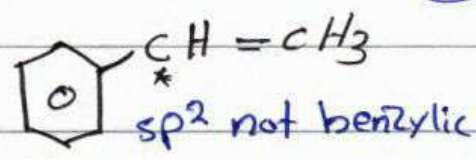 CH = CH3
*
sp² not benzylic